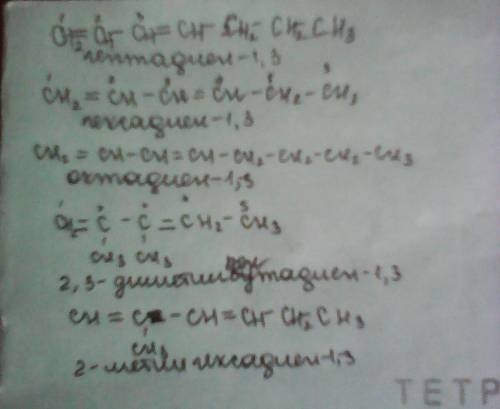 CH₂ = CH - CH = CH - CH₂ - CH₂ - CH₃
гептадиен-1,3
CH₂ = CH - CH = CH - CH₂ - CH₃
гексадиен-1,3
CH₂ = CH - CH = CH - CH₂ - CH₂ - CH₂ - CH₃
октадиен-1,3
CH₂ = C - C = CH₂ - CH₃
CH₃ CH₃
2,3-диметил пен тадиен-1,3
CH = C - CH = CH CH₂ CH₃
CH₃
2-метил гексадиен-1,3
ТЕТР